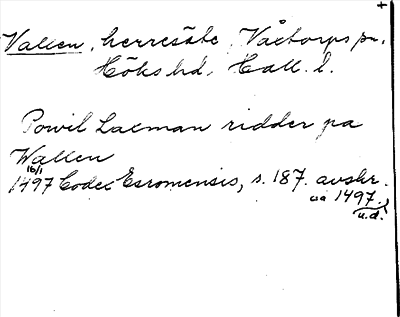 +
Vallen, herresäte, Våxtorps sn.
Höks hd, Hall. l.
Powil Laxman ridder pa
Wallen
16/1
1497 Codex Esromensis, s. 187. avskr.
ca 1497.
u.d.